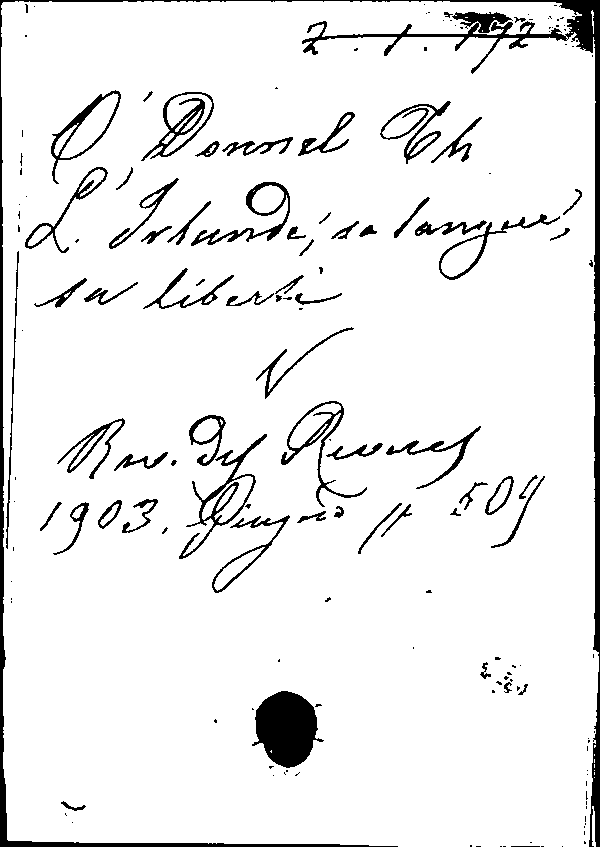 2. 1. 172
O'Donnel Th
L'Irlande, sa langue,
sa liberté
V
Rev. des Revues
1903. Giugno p. 509